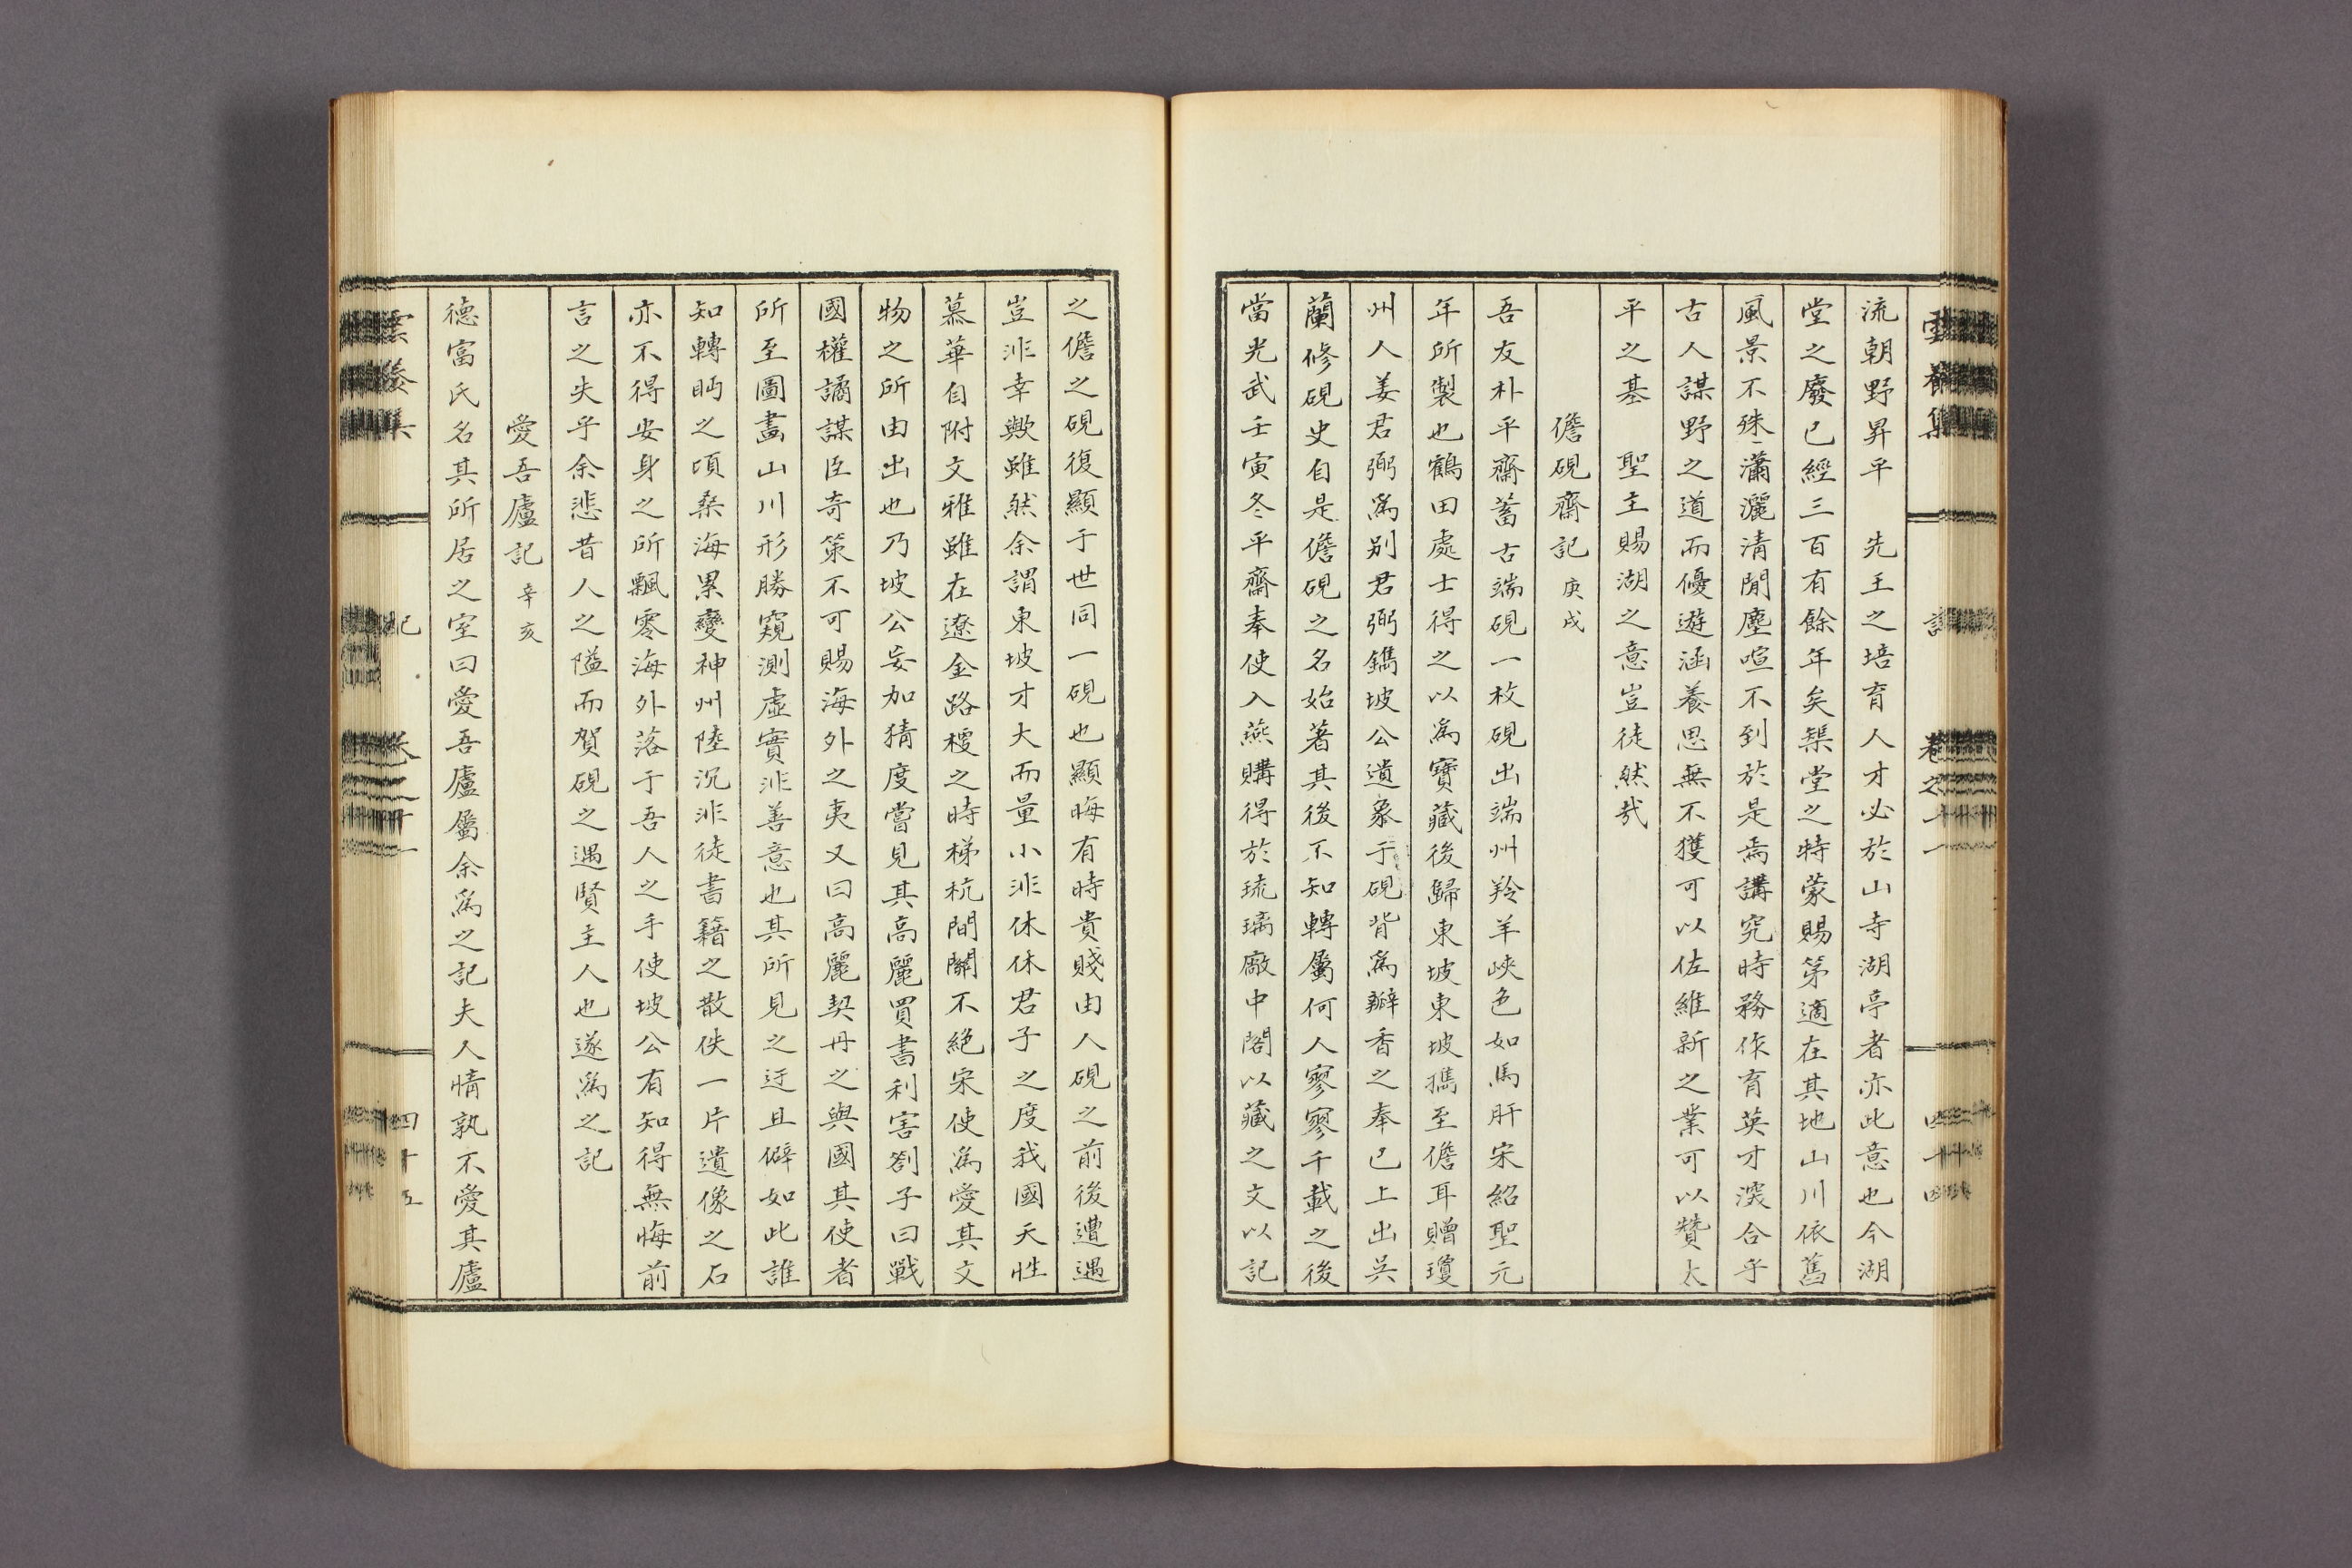 雲養集 記 卷之十一 四十四
流朝野昇平 先王之培育人才必於山寺湖亭者亦此意也今湖
堂之廢已經三百有餘年矣榘堂之特蒙賜第適在其地山川依舊
風景不殊瀟灑淸閒塵喧不到於是焉講究時務作育英才深合乎
古人謀野之道而優遊涵養思無不獲可以佐維新之業可以贊太
平之基 聖主賜湖之意豈徒然哉
儋硯齋記 庚戌
吾友朴平齋蓄古端硯一枚硯出端州羚羊峽色如馬肝宋紹聖元
年所製也鶴田處士得之以爲寶藏後歸東坡東坡攜至儋耳贈瓊
州人姜君弼爲別君弼鐫坡公遺象于硯背爲瓣香之奉已上出吳
蘭修硯史自是儋硯之名始著其後不知轉屬何人寥寥千載之後
當光武壬寅冬平齋奉使入燕購得於琉璃廠中閣以藏之文以記
之儋之硯復顯于世同一硯也顯晦有時貴賤由人硯之前後遭遇
豈非幸歟雖然余謂東坡才大而量小非休休君子之度我國天性
慕華自附文雅雖在遼金路梗之時梯杭間關不絶宋使爲愛其文
物之所由出也乃坡公妄加猜度嘗見其高麗買書利害劄子曰戰
國權譎謀臣奇策不可賜海外之夷又曰高麗契丹之與國其使者
所至圖畫山川形勝窺測虛實非善意也其所見之迂且僻如此誰
知轉眄之頃桑海累變神州陸沉非徒書籍之散佚一片遺像之石
亦不得安身之所飄零海外落于吾人之手使坡公有知得無悔前
言之失乎余悲昔人之隘而賀硯之遇賢主人也遂爲之記
愛吾廬記 辛亥
德富氏名其所居之室曰愛吾廬屬余爲之記夫人情孰不愛其廬
雲養集 記 卷之十一 四十五